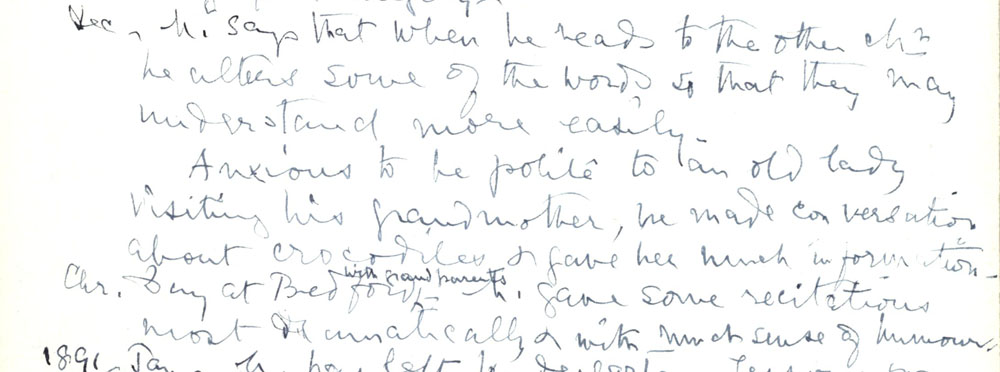 Dec, N. says that when he reads to the other chn
he alters some of the words so that they may
understand more easily.
Anxious to be polite to an old lady
visiting his grandmother, he made conversation
about crocodiles & gave her much information
with grandparents
Chr. Day at Bedford N. gave some recitations
most dramatically & with much sense of humour.
1891 Jan.